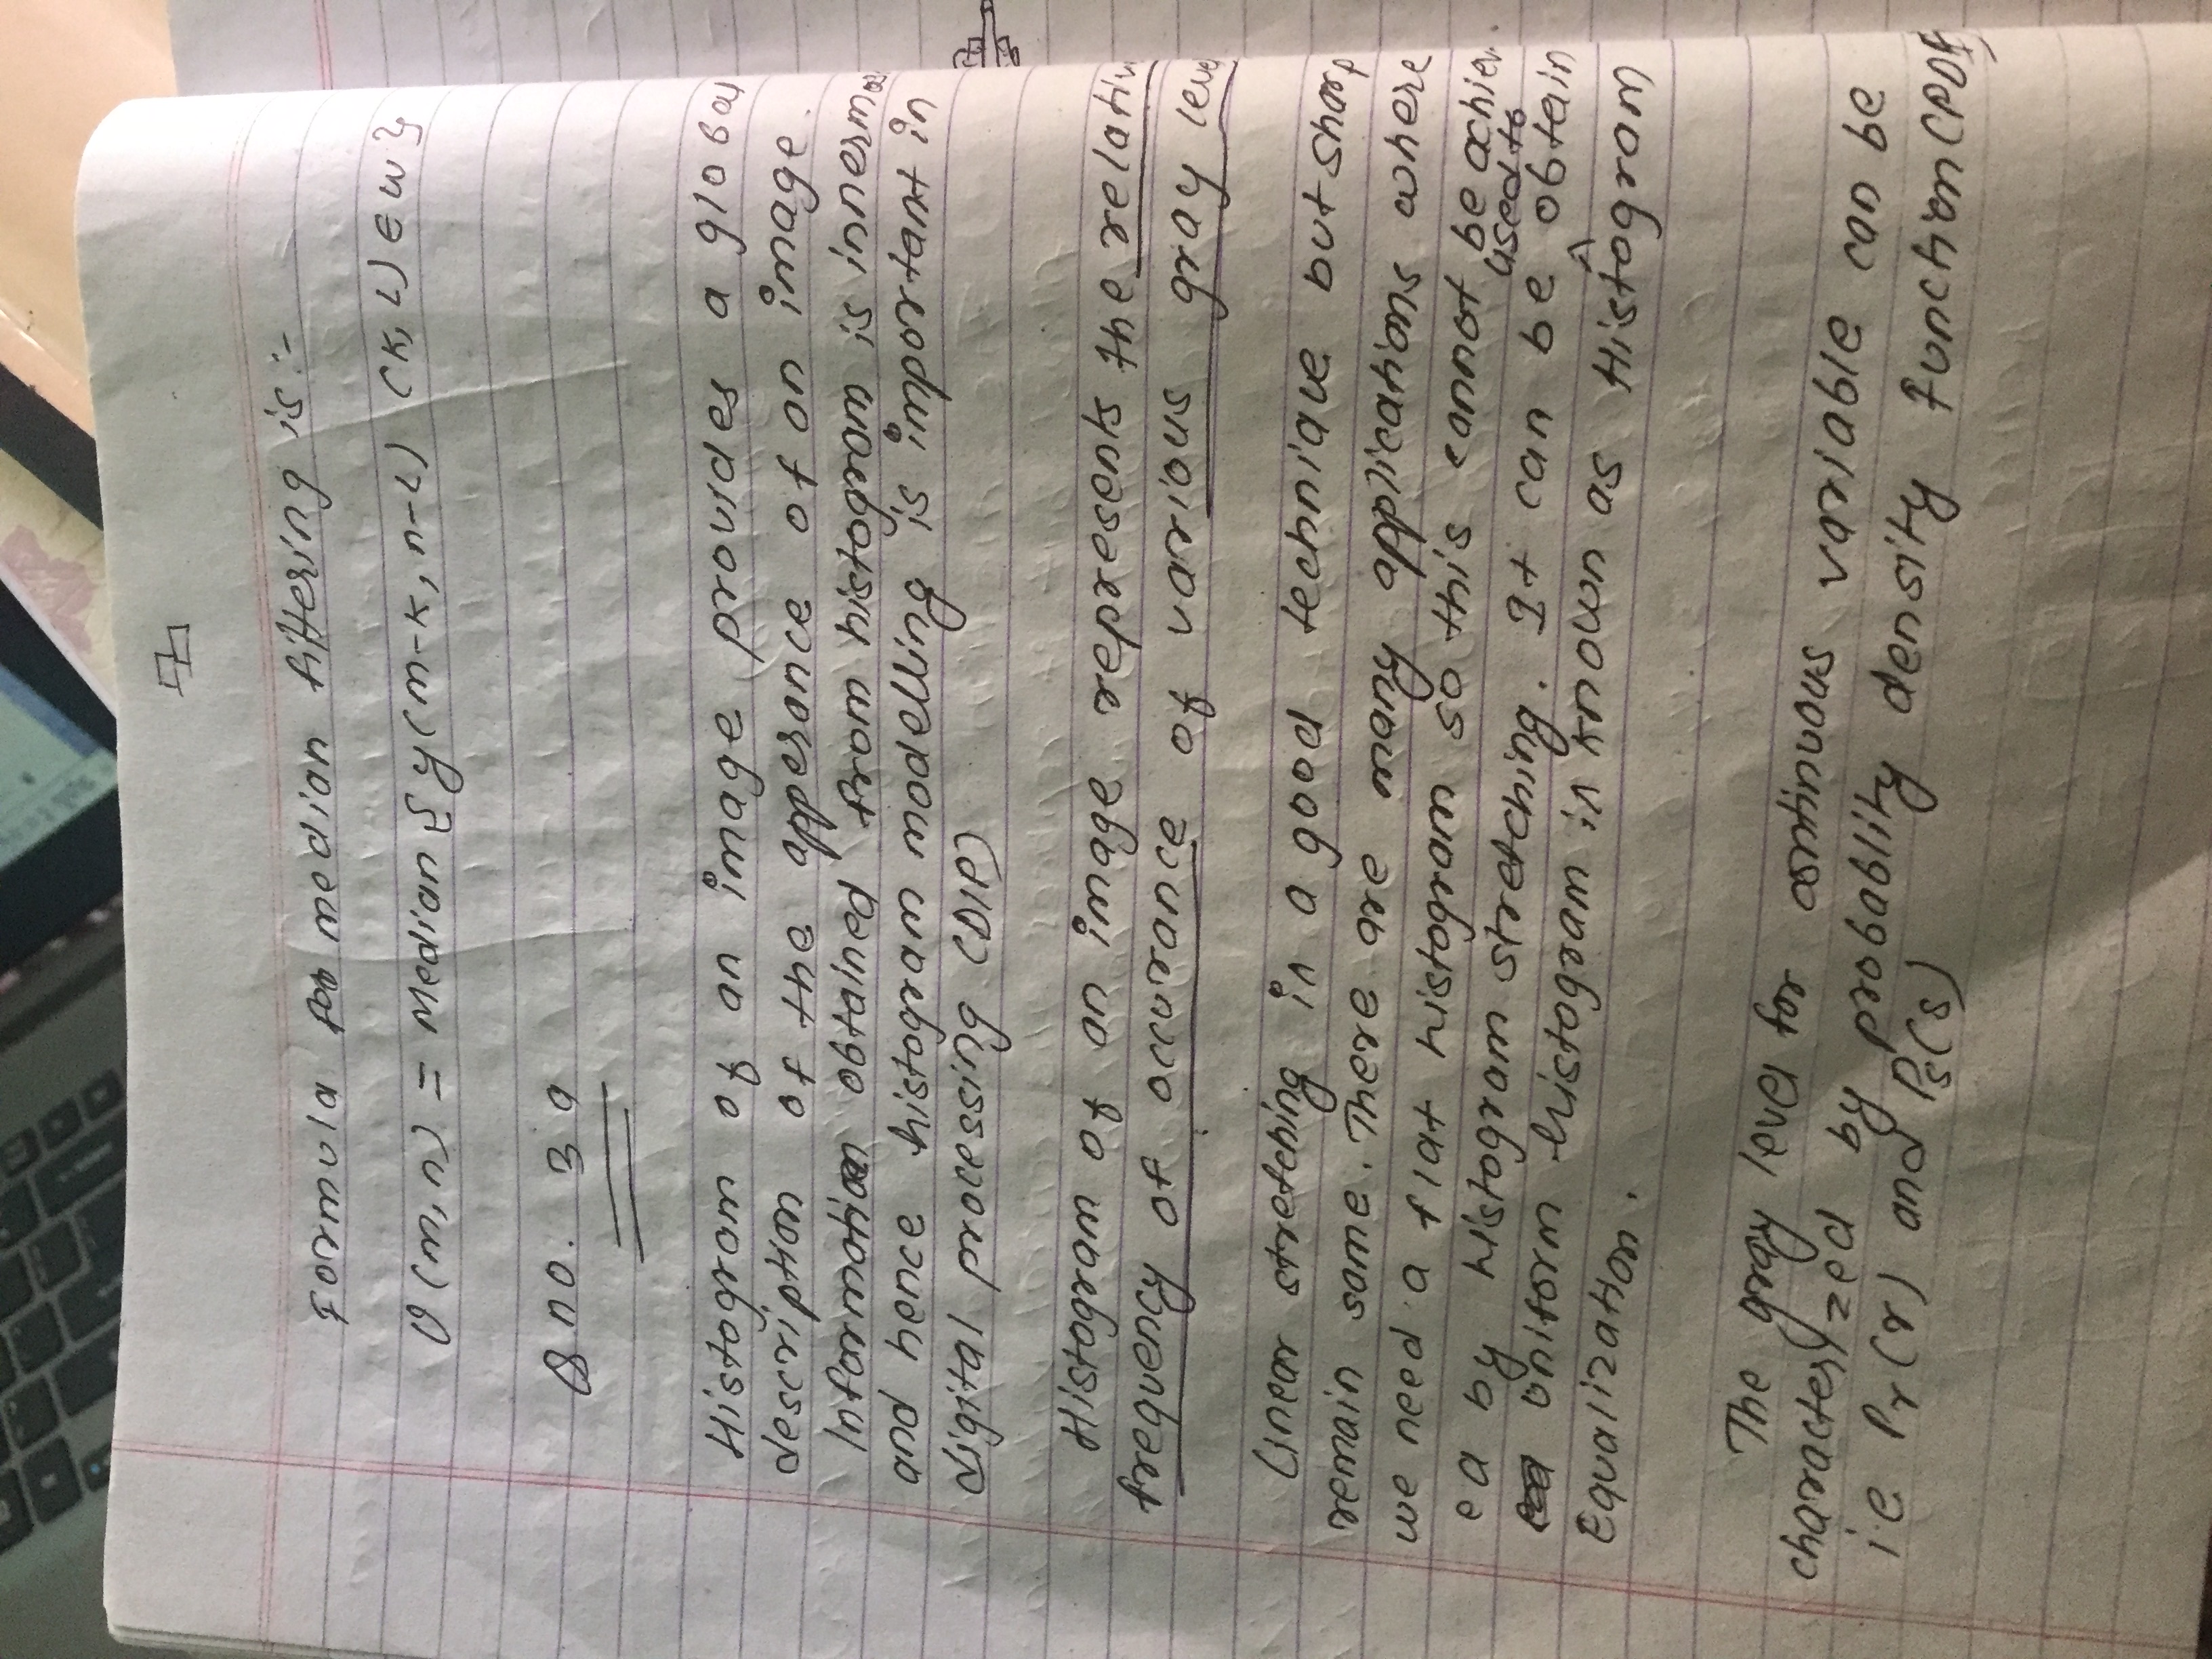 Formula for median filtering is :-
v(m,n) = Median { y(m-k, n-L) (K,L) ∈ w }
Q no. 3 a
Histogram of an image provides a global
description of the apperance of an image.
Information obtained from histogram is innermos
and hence histogram modelling is important in
digital processing (DIP)
Histogram of an image represents the relativ
frequency of occurance of various gray leve
Linear stretching is a good technique but sharp
remain same. There are many applications where
we need a flat histogram so this cannot be achiev
ed by histogram stretching. It can be used to obtain
uniform histogram is known as Histogram
Equalization.
The gray level for continuous variable can be
characterized by probablity density function (PDF)
i.e Pr(r) and Ps(s)